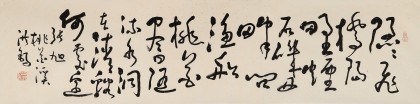 隱隱飛
橋隔
野煙
石磯西
畔問
漁船
桃花
盡日隨
流水洞
在清谿
何處邊
張旭
桃花溪